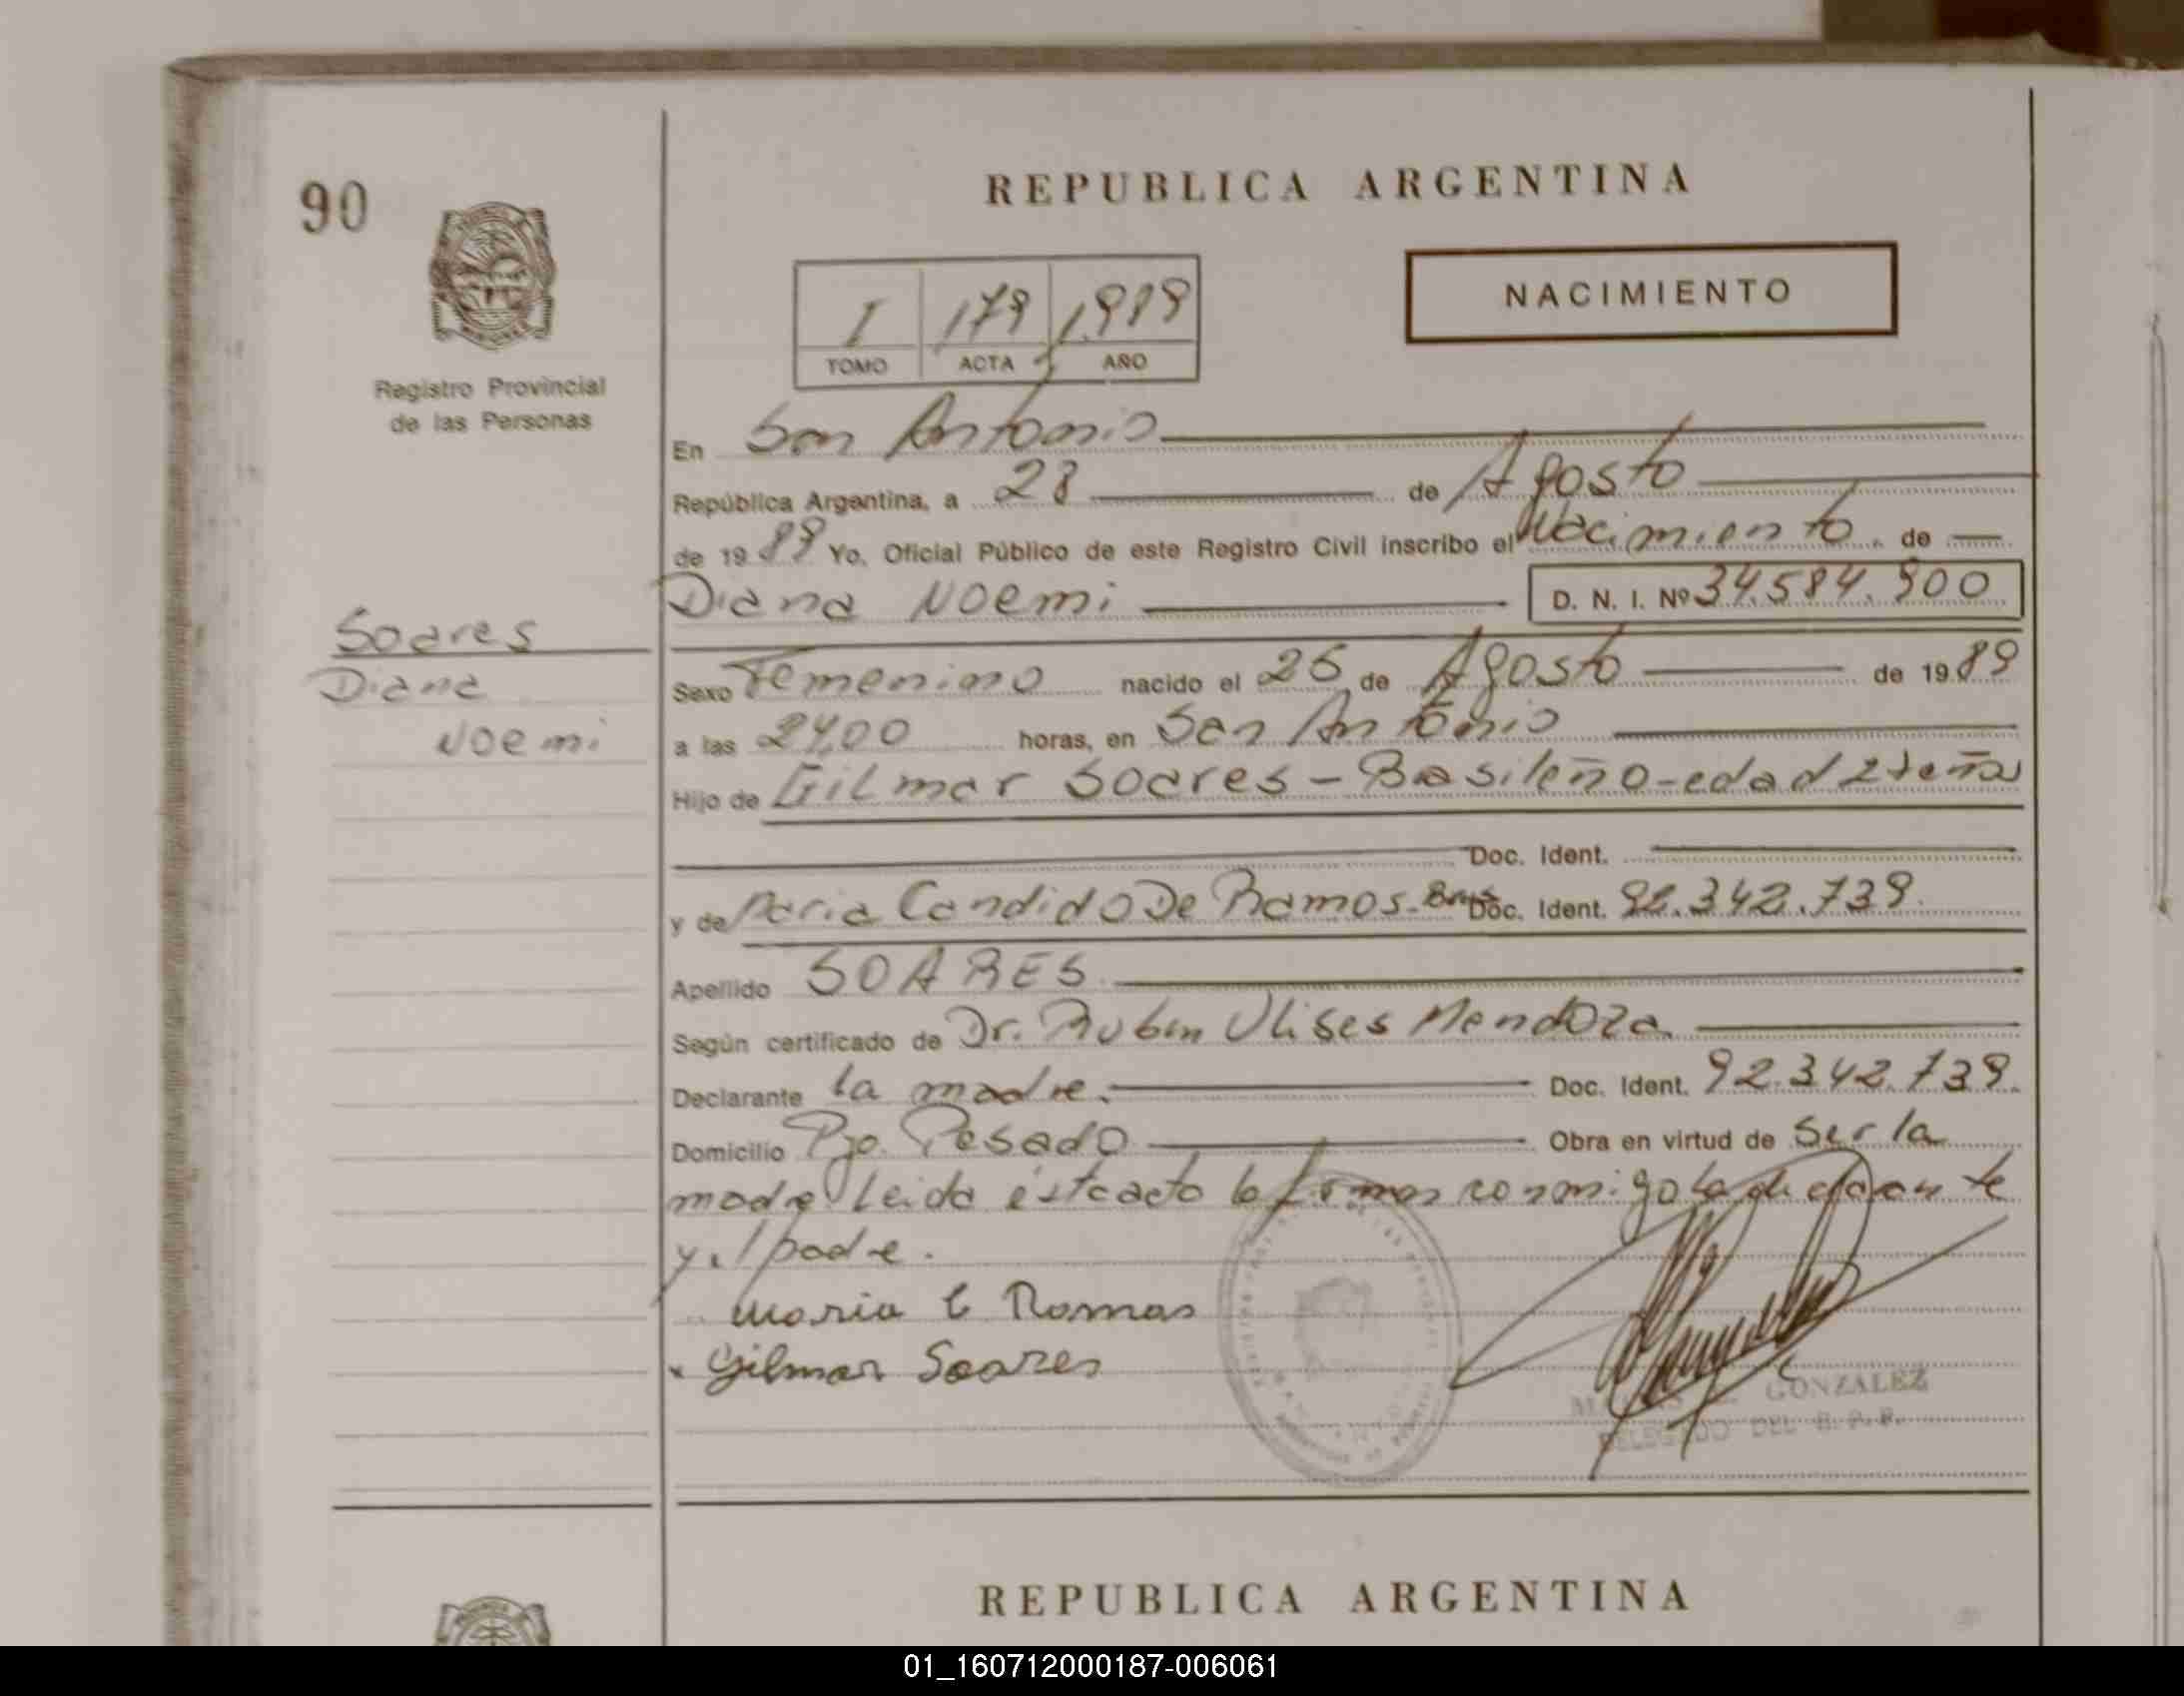 90
REPUBLICA ARGENTINA
NACIMIENTO
I 179 1.989
TOMO ACTA AÑO
Registro Provincial
de las Personas
En San Antonio
República Argentina, a 28 de Agosto
de 19 89 Yo, Oficial Público de este Registro Civil inscribo el Nacimiento de
Diana Noemi D. N. I. Nº 34.584.900
Soares
Diana
Noemi
Sexo Femenino nacido el 26 de Agosto de 19 89
a las 24,00 horas, en San Antonio
Hijo de Gilmar Soares - Basileño - edad años
Doc. Ident.
y de Maria Candido De Ramos - Doc. Ident. 92.342.739
Apellido SOARES
Según certificado de Dr. Ruben Ulises Mendoza
Declarante la madre. Doc. Ident. 92.342.739
Domicilio Pjo. Pesado Obra en virtud de Ser la
madre Leida este acto la firman conmigo la declarante
y el padre.
Maria C Ramos
x Gilmar Soares
GONZALEZ
DELEGADO DEL R. P. P.
REPUBLICA ARGENTINA
01_160712000187-006061